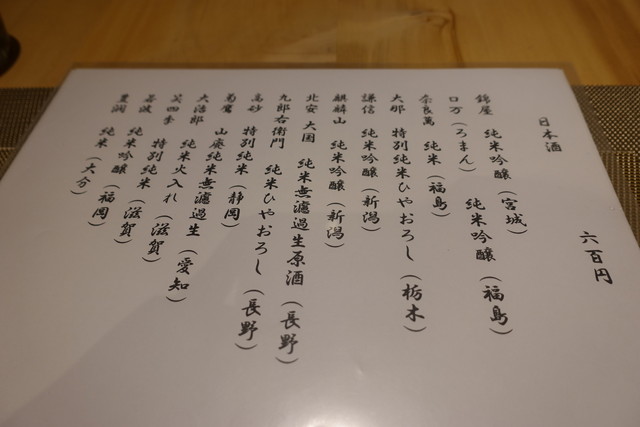 日本酒 六百円
綿屋 純米吟醸(宮城)
ロ万(ろまん) 純米吟醸(福島)
奈良萬 純米(福島)
大那 特別純米ひやおろし(栃木)
謙信 純米吟醸(新潟)
麒麟山 純米吟醸(新潟)
北安大国 純米無濾過生原酒(長野)
九郎右衛門 純米ひやおろし(長野)
高砂 特別純米(静岡)
菊鷹 山廃純米無濾過生(愛知)
大治郎 純米火入れ(滋賀)
笑四季 特別純米(滋賀)
若波 純米吟醸(福岡)
豊潤 純米(大分)